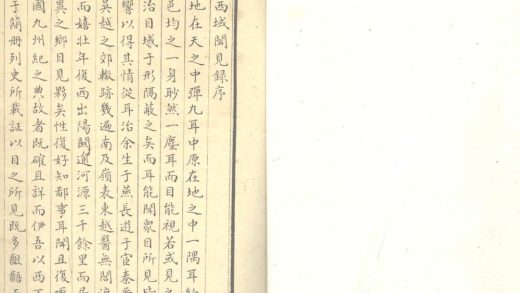 西域聞見錄序
地在天之中彈丸耳中原在地之中一隅耳
邑均之一身眇然一塵耳而目能視若或見之
治目域于形隔蔽之矣而耳能聞衆目所見皆
響以得其情從耳治余生于燕長遊于宦秦
吳越之郊轍跡幾遍南及嶺表東越醫無閭
而嬉壯年復西出陽關邇河源三千餘里而
異之鄉目見夥矣性復好知鄙事耳聞且復
國九州紀之典故者既確且詳而伊吾以西
于簡冊列史所載証以目之所見既多齟齬